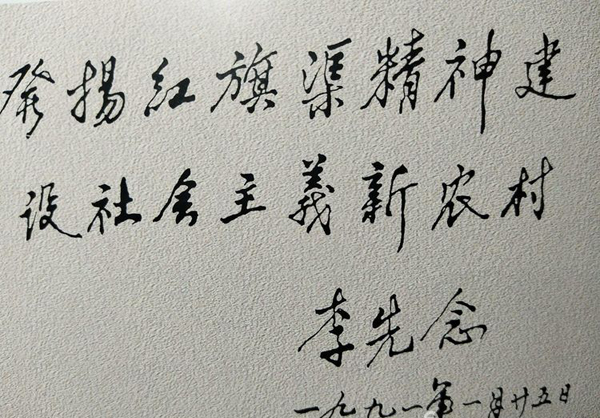 發揚红旗渠精神建
设社会主義新农村
李先念
一九九一年一月廿五日